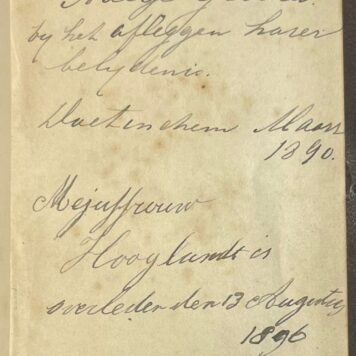 by het afleggen harer
belydenis.
Doetinchem Maart
1890.
Mejuffrouw
Hooglandt is
overleden den 13 Augustus
1896